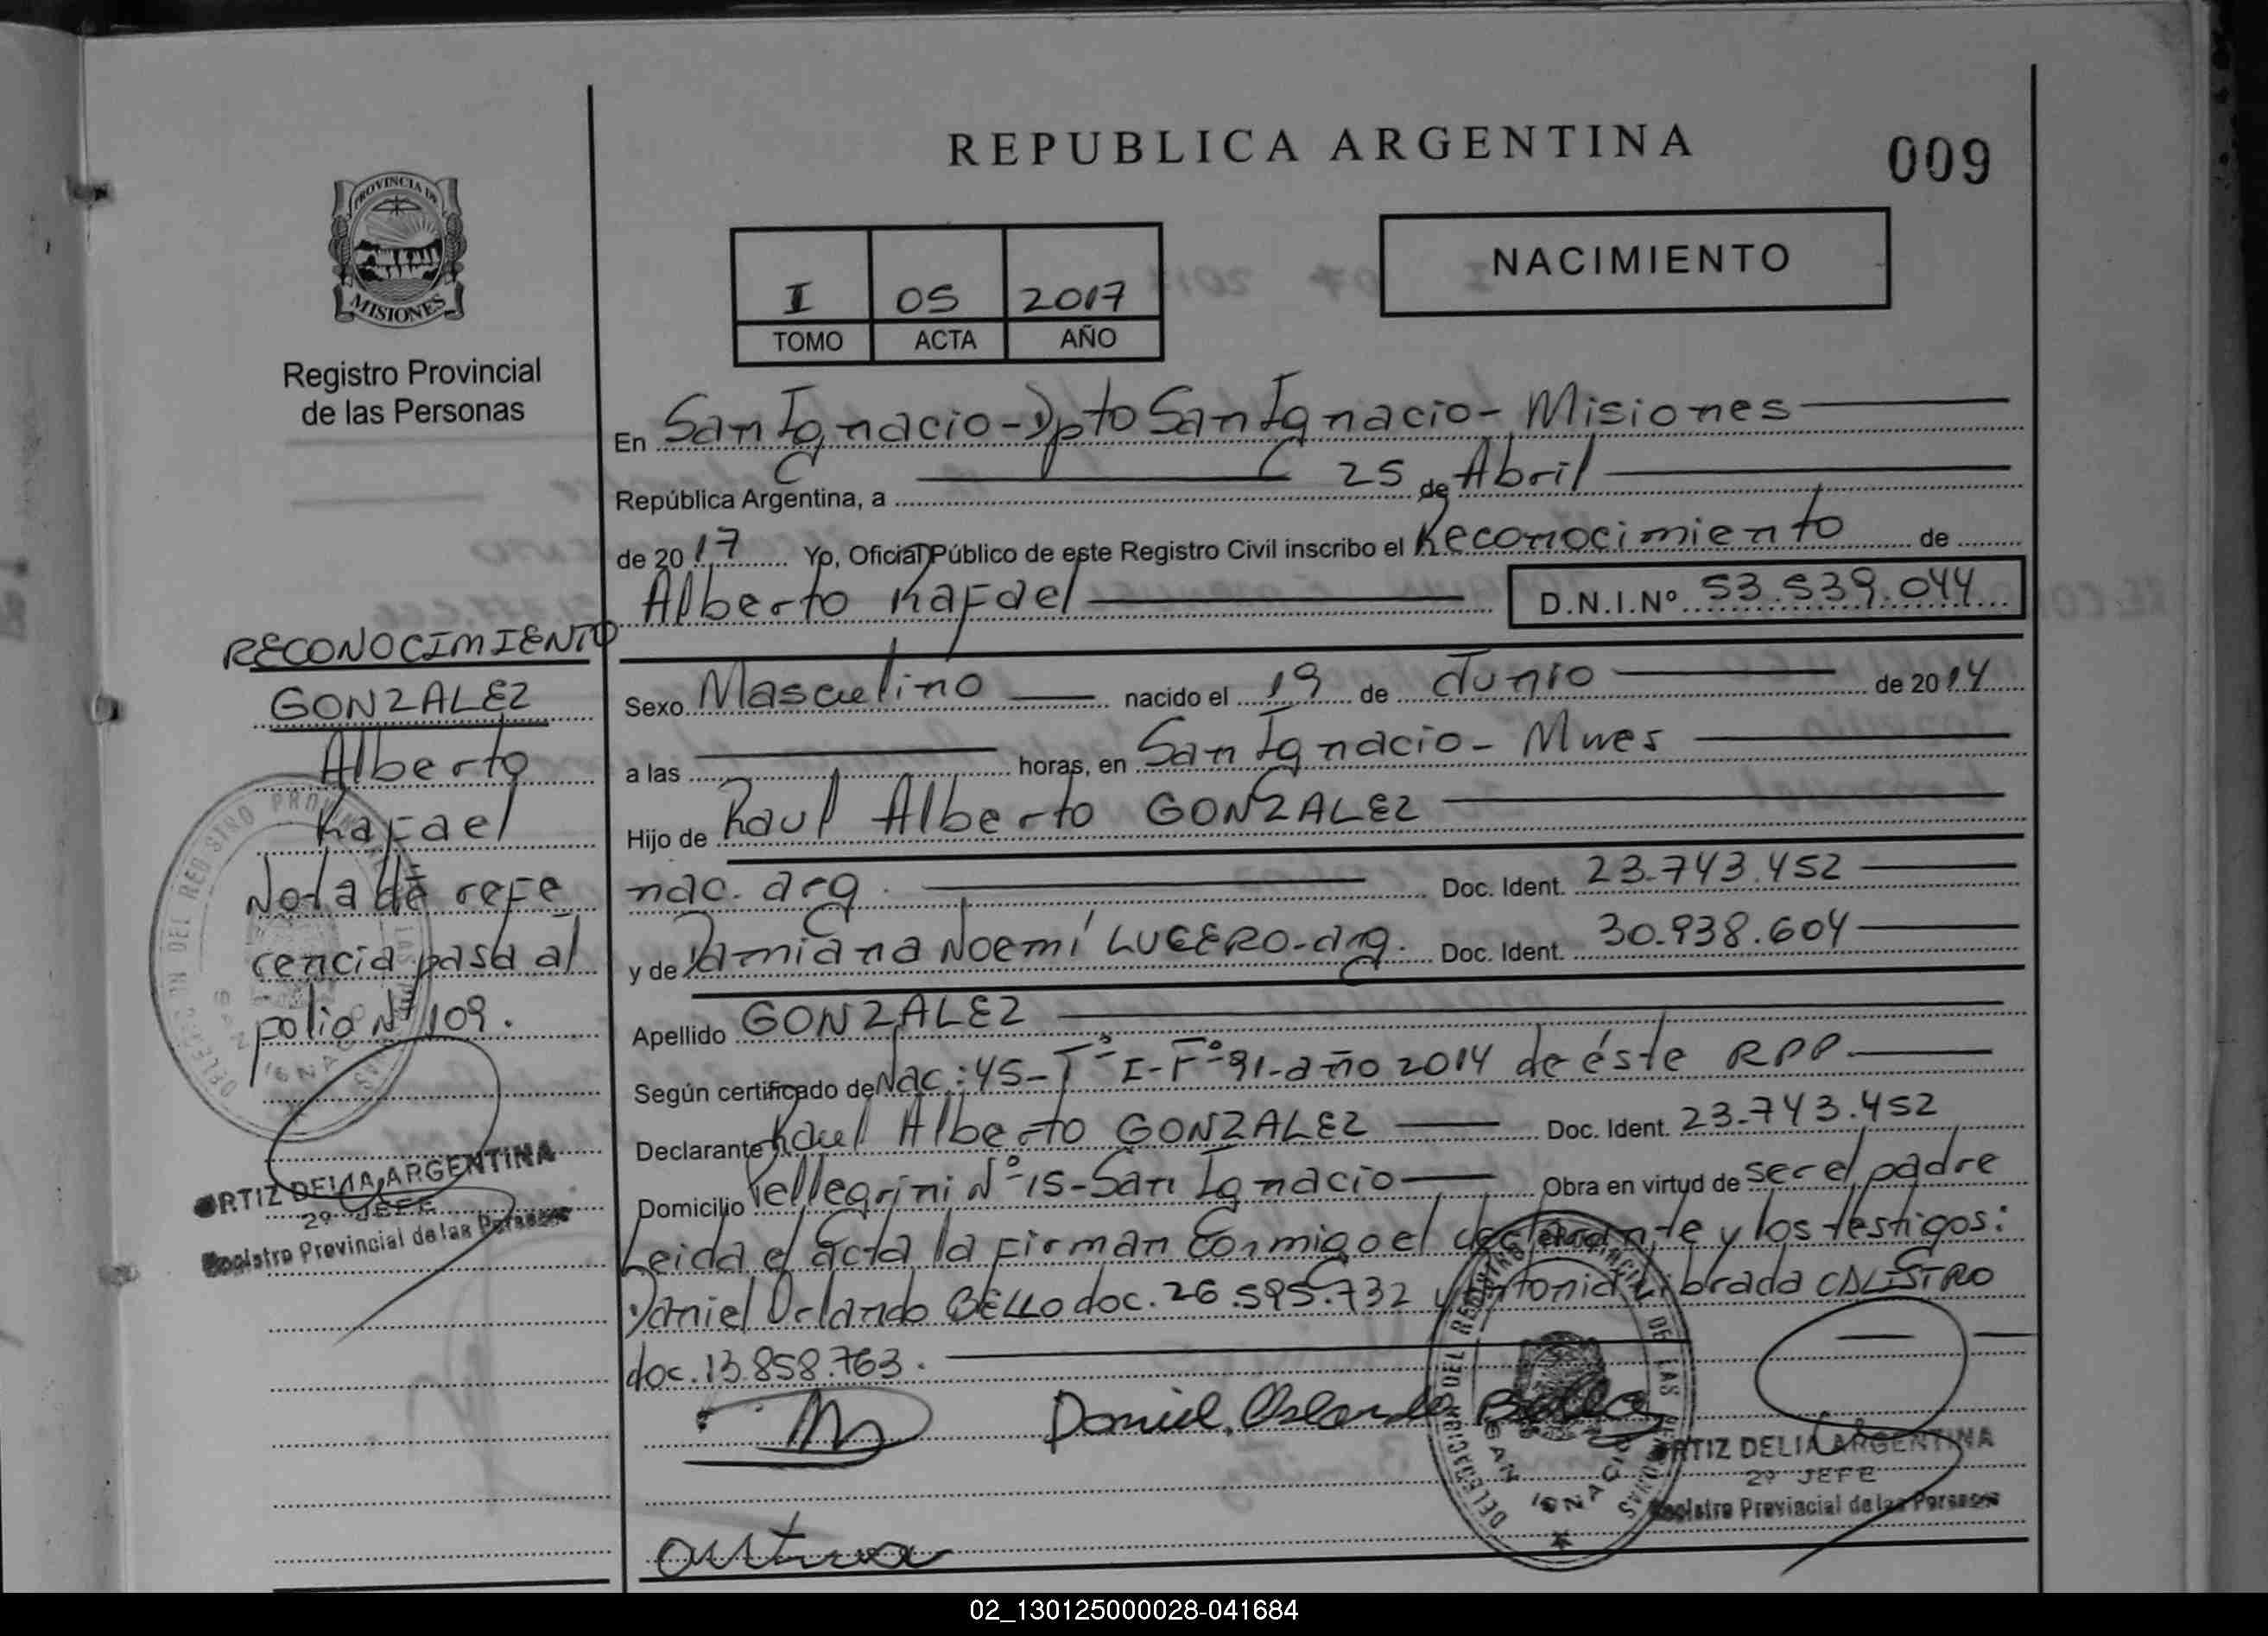 REPUBLICA ARGENTINA
009
PROVINCIA DE
MISIONES
Registro Provincial
de las Personas
I 05 2017
TOMO ACTA AÑO
NACIMIENTO
En San Ignacio - Dpto San Ignacio - Misiones
República Argentina, a 25 de Abril
de 2017 Yo, Oficial Público de este Registro Civil inscribo el Reconocimiento de
Alberto Rafael D.N.I.Nº 53.539.044
RECONOCIMIENTO
GONZALEZ
Alberto
Rafael
Nota de refe
rencia pasa al
folio Nº 109.
ORTIZ DELIA ARGENTINA
2º JEFE
Registro Provincial de las Personas
Sexo Masculino nacido el 19 de Junio de 2014
a las horas, en San Ignacio - Mnes
Hijo de Raul Alberto GONZALEZ
nac. arg. Doc. Ident. 23.743.452
y de Damiana Noemí LUCERO - arg. Doc. Ident. 30.938.604
Apellido GONZALEZ
Según certificado de Nac: 45 - Tº I - Fº 91 - año 2014 de éste RPP.
Declarante Raul Alberto GONZALEZ Doc. Ident. 23.743.452
Domicilio Pellegrini Nº 15 - San Ignacio Obra en virtud de ser el padre
Leida el acta la firman Conmigo el declarante y los testigos:
Daniel Orlando BELLO doc. 26.595.732 y Antonia Librada CALISTRO
doc. 13.858.763.
Daniel Orlando Bello
DELEGACION DEL REGISTRO PROVINCIAL DE LAS PERSONAS
SAN IGNACIO
ORTIZ DELIA ARGENTINA
2º JEFE
Registro Provincial de las Personas
02_130125000028-041684